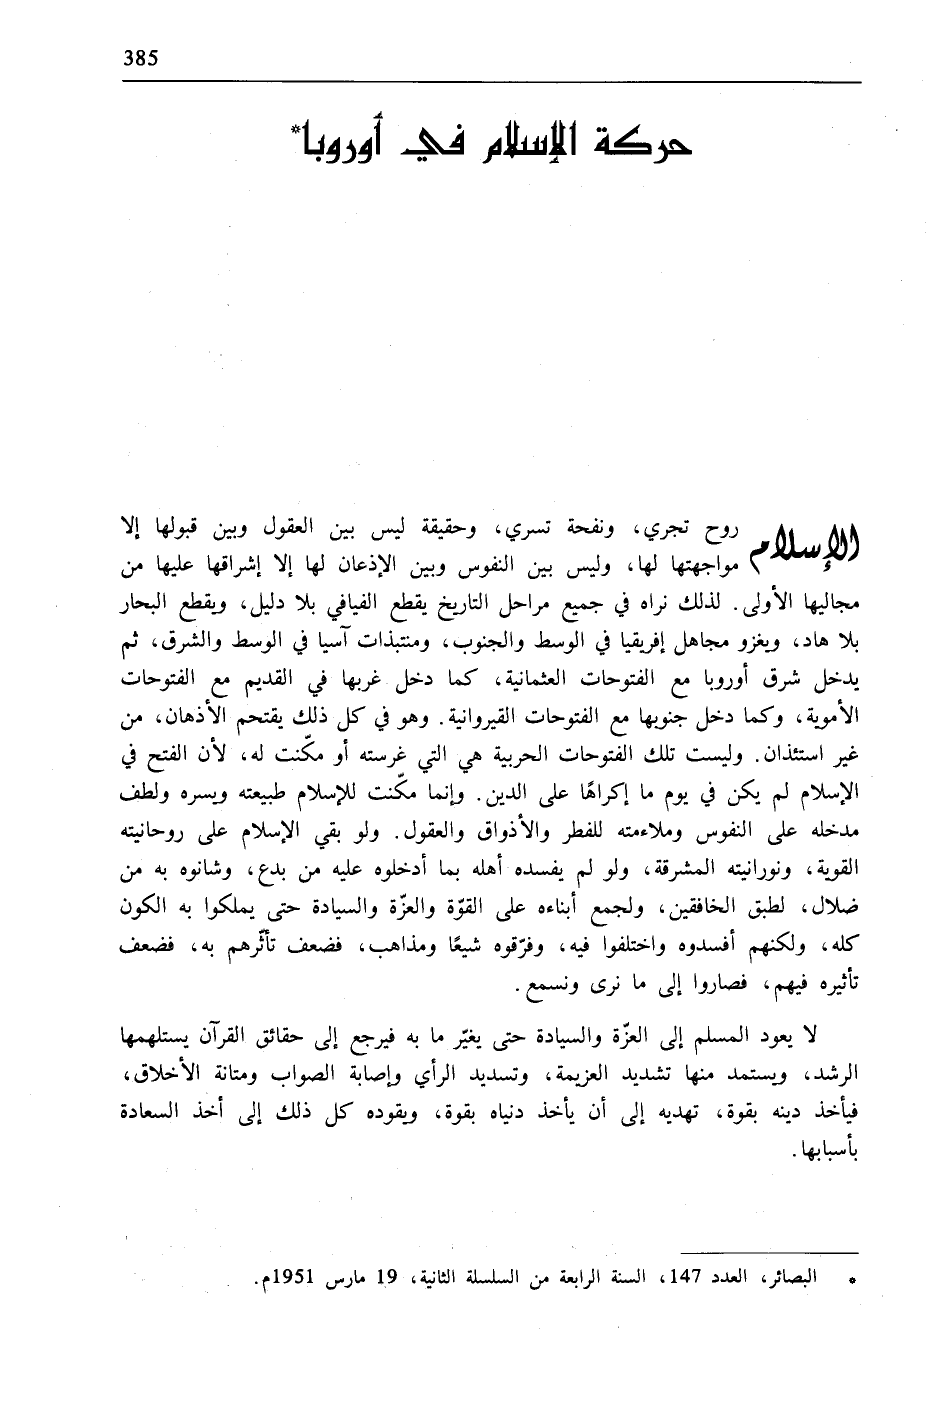 385
حركة الإسلام في أوروبا*
الإسلام روح تجري، ونفحة تسري، وحقيقة ليس بين العقول وبين قبولها إلا
مواجهتها لها، وليس بين النفوس وبين الإذعان لها إلا إشراقها عليها من
مجاليها الأولى. لذلك نراه في جميع مراحل التاريخ يقطع الفيافي بلا دليل، ويقطع البحار
بلا هاد، ويغزو مجاهل إفريقيا في الوسط والجنوب، ومنتبذات آسيا في الوسط والشرق، ثم
يدخل شرق أوروبا مع الفتوحات العثمانية، كما دخل غربها في القديم مع الفتوحات
الأموية، وكما دخل جنوبها مع الفتوحات القيروانية. وهو في كل ذلك يقتحم الأذهان، من
غير استئذان. وليست تلك الفتوحات الحربية هي التي غرسته أو مكّنت له، لأن الفتح في
الإسلام لم يكن في يوم ما إكراهًا على الدين. وإنما مكّنت للإسلام طبيعته ويسره ولطف
مدخله على النفوس وملاءمته للفطر والأذواق والعقول. ولو بقي الإسلام على روحانيته
القوية، ونورانيته المشرقة، ولو لم يفسده أهله بما أدخلوه عليه من بدع، وشانوه به من
ضلال، لطبق الخافقين، ولجمع أبناءه على القوّة والعزّة والسيادة حتى يملكوا به الكون
كله، ولكنهم أفسدوه واختلفوا فيه، وفرّقوه شيعًا ومذاهب، فضعف تأثّرهم به، فضعف
تأثيره فيهم، فصاروا إلى ما نرى ونسمع.
لا يعود المسلم إلى العزّة والسيادة حتى يغيّر ما به فيرجع إلى حقائق القرآن يستلهمها
الرشد، ويستمد منها تشديد العزيمة، وتسديد الرأي وإصابة الصواب ومتانة الأخلاق،
فيأخذ دينه بقوة، تهديه إلى أن يأخذ دنياه بقوة، ويقوده كل ذلك إلى أخذ السعادة
بأسبابها.
* البصائر، العدد 147، السنة الرابعة من السلسلة الثانية، 19 مارس 1951م.